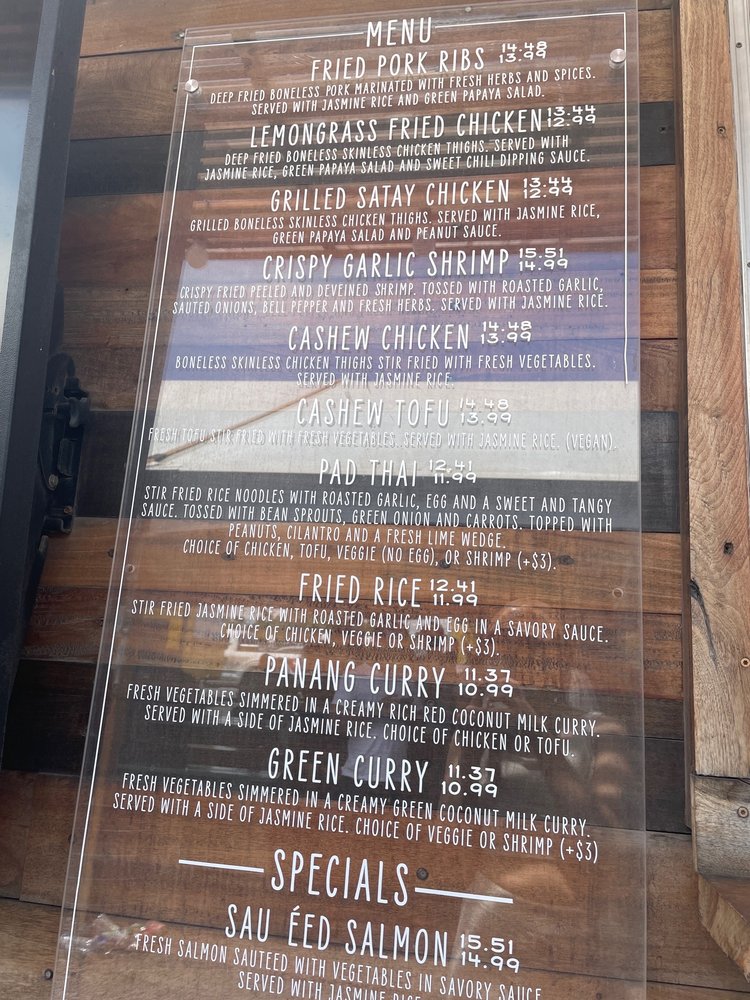 MENU
FRIED PORK RIBS 14.48
13.99
DEEP FRIED BONELESS PORK MARINATED WITH FRESH HERBS AND SPICES.
SERVED WITH JASMINE RICE AND GREEN PAPAYA SALAD.
LEMONGRASS FRIED CHICKEN 13.44
12.99
DEEP FRIED BONELESS SKINLESS CHICKEN THIGHS. SERVED WITH
JASMINE RICE, GREEN PAPAYA SALAD AND SWEET CHILI DIPPING SAUCE.
GRILLED SATAY CHICKEN 13.44
12.99
GRILLED BONELESS SKINLESS CHICKEN THIGHS. SERVED WITH JASMINE RICE,
GREEN PAPAYA SALAD AND PEANUT SAUCE.
CRISPY GARLIC SHRIMP 15.51
14.99
CRISPY FRIED PEELED AND DEVEINED SHRIMP. TOSSED WITH ROASTED GARLIC,
SAUTED ONIONS, BELL PEPPER AND FRESH HERBS. SERVED WITH JASMINE RICE.
CASHEW CHICKEN 14.48
13.99
BONELESS SKINLESS CHICKEN THIGHS STIR FRIED WITH FRESH VEGETABLES.
SERVED WITH JASMINE RICE.
CASHEW TOFU 14.48
13.99
FRESH TOFU STIR FRIED WITH FRESH VEGETABLES. SERVED WITH JASMINE RICE. (VEGAN).
PAD THAI 12.41
11.99
STIR FRIED RICE NOODLES WITH ROASTED GARLIC, EGG AND A SWEET AND TANGY
SAUCE. TOSSED WITH BEAN SPROUTS, GREEN ONION AND CARROTS. TOPPED WITH
PEANUTS, CILANTRO AND A FRESH LIME WEDGE.
CHOICE OF CHICKEN, TOFU, VEGGIE (NO EGG), OR SHRIMP (+$3).
FRIED RICE 12.41
11.99
STIR FRIED JASMINE RICE WITH ROASTED GARLIC AND EGG IN A SAVORY SAUCE.
CHOICE OF CHICKEN, VEGGIE OR SHRIMP (+$3).
PANANG CURRY 11.37
10.99
FRESH VEGETABLES SIMMERED IN A CREAMY RICH RED COCONUT MILK CURRY.
SERVED WITH A SIDE OF JASMINE RICE. CHOICE OF CHICKEN OR TOFU.
GREEN CURRY 11.37
10.99
FRESH VEGETABLES SIMMERED IN A CREAMY GREEN COCONUT MILK CURRY.
SERVED WITH A SIDE OF JASMINE RICE. CHOICE OF VEGGIE OR SHRIMP (+$3)
SPECIALS
SAU ÉED SALMON 15.51
14.99
FRESH SALMON SAUTEED WITH VEGETABLES IN SAVORY SAUCE
SERVED WITH JASMINE RICE